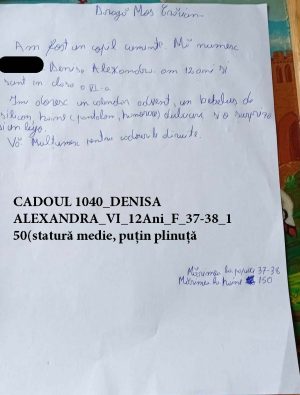 Dragă Moș Crăciun
Am fost un copil cuminte. Mă numesc
Denisa Alexandra am 12 ani și
sunt în clasa a VI-a
Îmi doresc un calendar advent, un bebeluș de
silicon, haine (pandalon, hanorac) dulciuri și o surpriză
și un lego
Vă Mulțumesc pentru cadourile dăruite.
CADOUL 1040_DENISA
ALEXANDRA_VI_12Ani_F_37-38_1
50(statură medie, puțin plinuță
Mărimea la papuci 37-38
Mărimea la haine 150